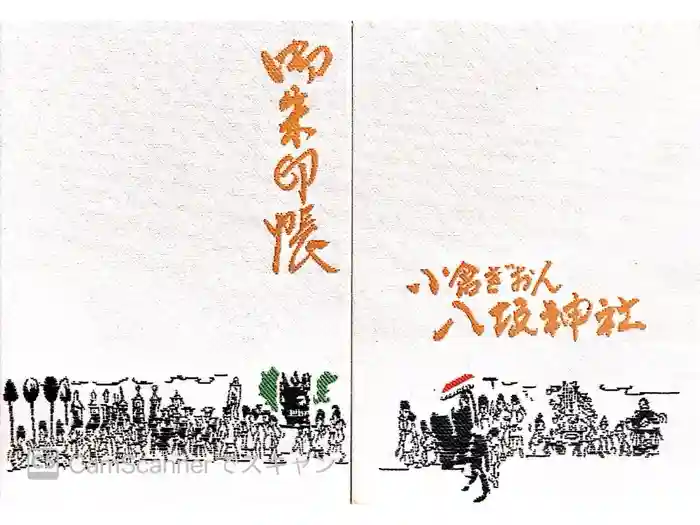 御朱印帳
小倉ぎおん
八坂神社
CS CamScannerでスキャン